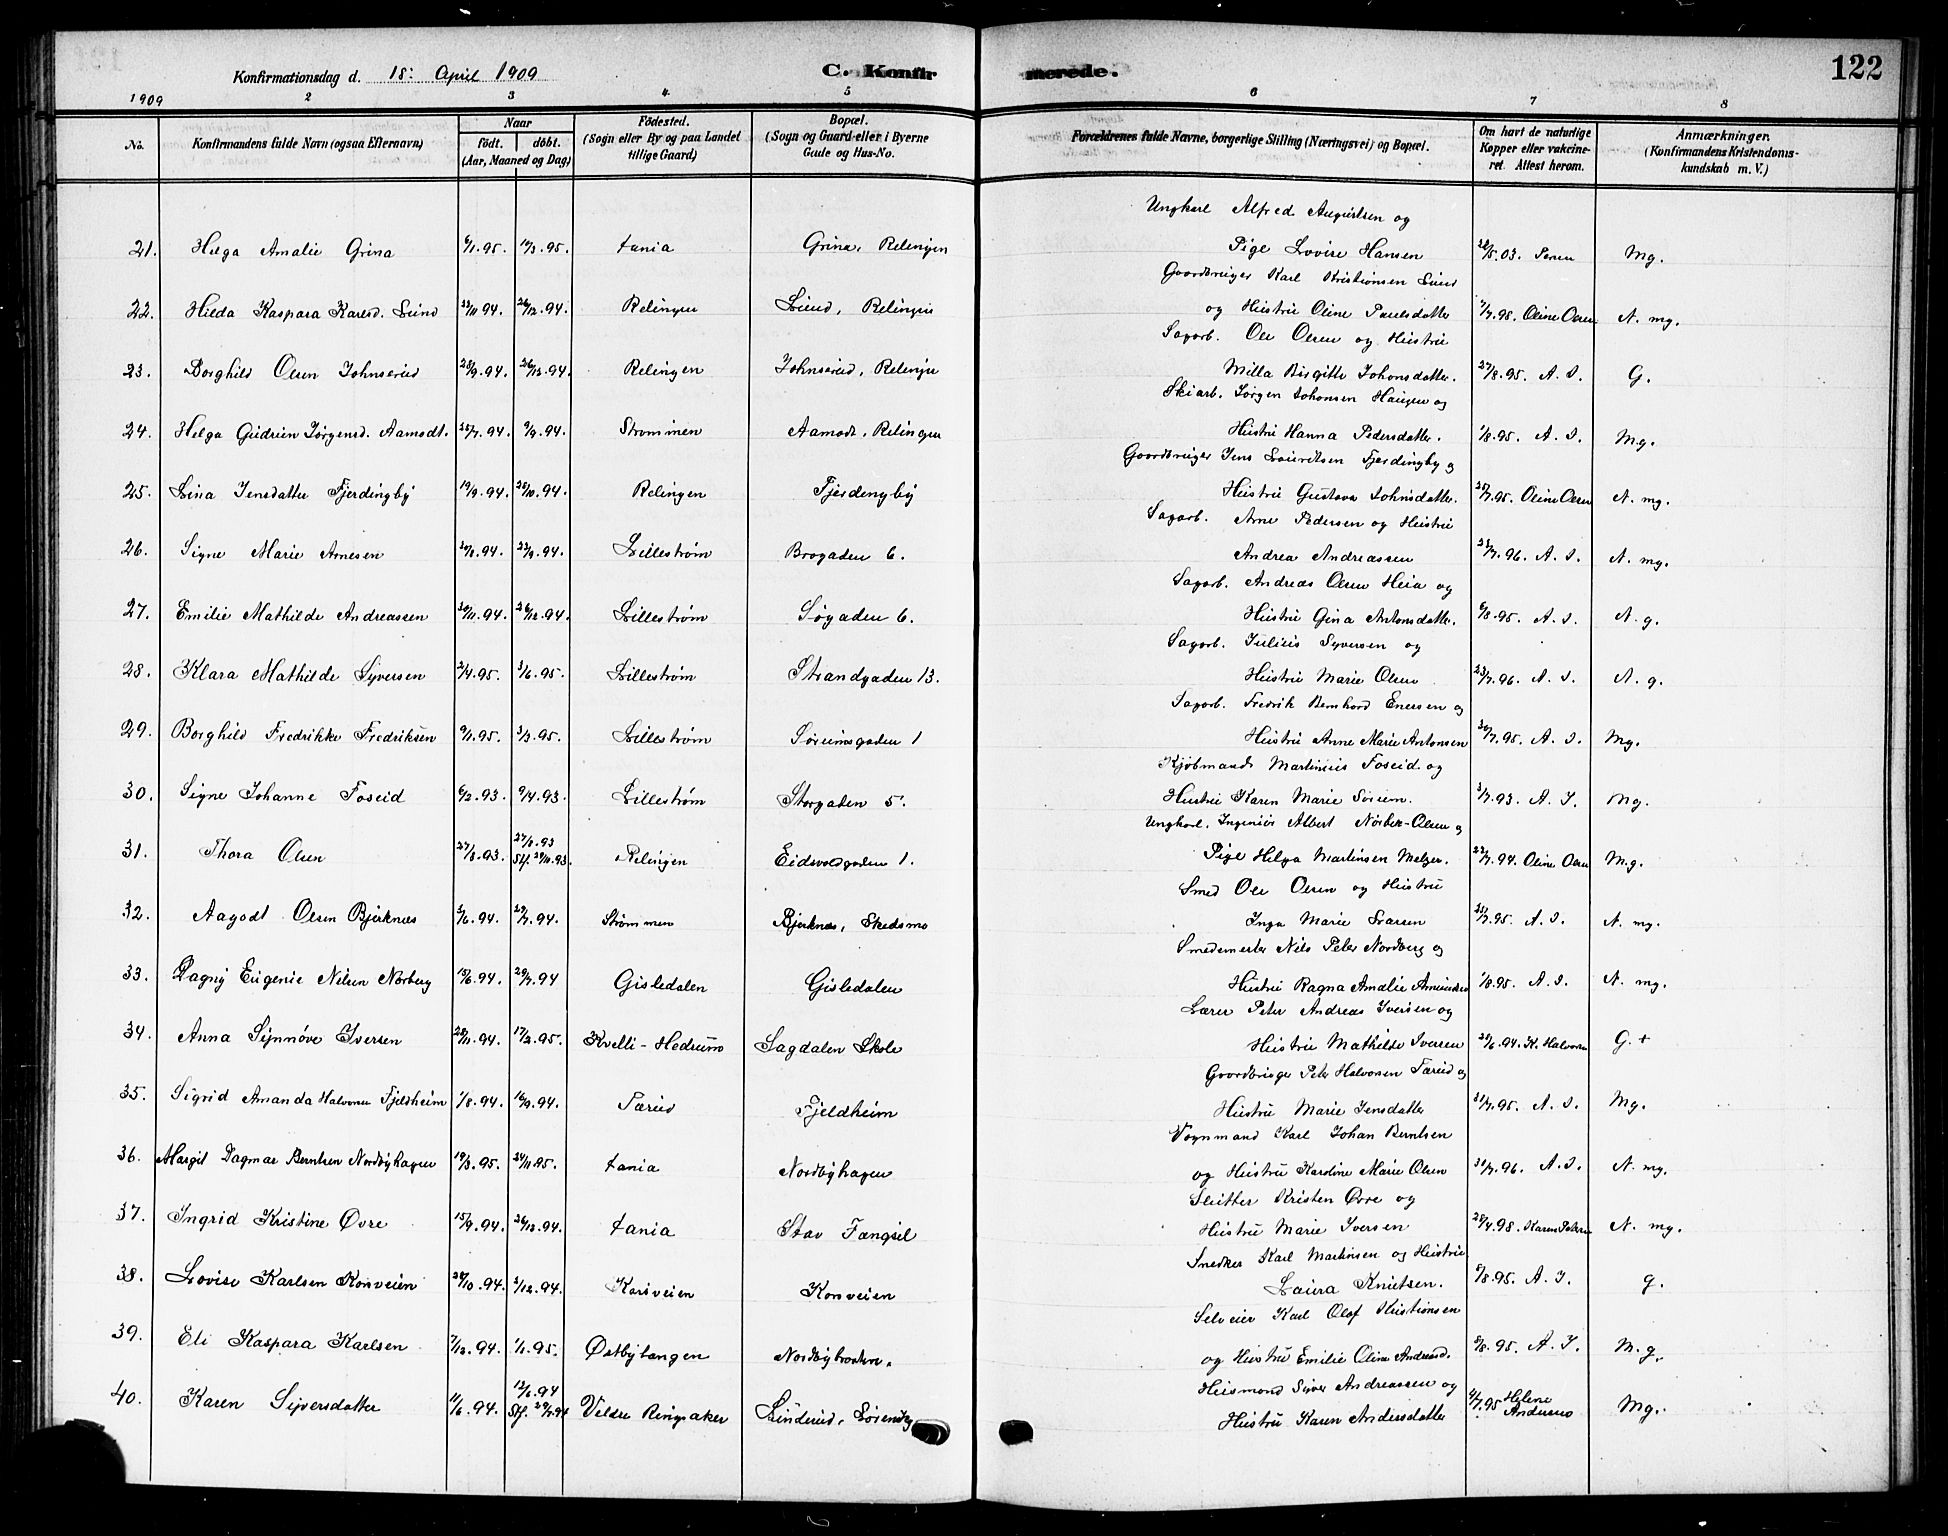 Konfirmationsdag d. 18: April 1909
C. Konfirmerede.
122
1909 2 3 4 5 6 7 8
No.
Konfirmandens fulde Navn (ogsaa Efternavn)
Naar
født. døbt.
(Aar, Maaned og Dag)
Fødested.
(Sogn eller By og paa Landet
tillige Gaard)
Bopæl.
(Sogn og Gaard eller i Byerne
Gade og Hus-No.
Forældrenes fulde Navne, borgerlige Stilling (Næringsvei) og Bopæl.
Om havt de naturlige
Kopper eller vakcine-
ret. Attest herom.
Anmærkninger.
(Konfirmandens Kristendoms-
kundskab m. V.)
Ungkarl Alfred Augustsen og
21. Helga Amalie Grina 6/1.95. 17/3.95. tania Grina, Relingen Pige Lovise Hansen /5.03. Mg.
Gaardbruger Karl Kristiansen Lund
22. Hilda Kaspara Karlsd. Lund /11 94. 26/12.94. Relingen Lund, Relingen og Hustru Oline Paulsdatter 7/7.98. Oline Olsen N. mg.
Sagarb. Ole Olsen og Hustru
23. Borghild Olsen Johnserud 28/9.94. 26/12.94. Relingen Johnserud, Relingen Milla Birgitte Johansdatter. 27/8.95. A. I. G.
Skiarb. Jørgen Johansen Haugen og
24. Helga Gudrun Jørgensd. Aamodt. /7.94. 9/9.94. Strømmen Aamodt, Relingen Hustru Hanna Pedersdatter. 1/8.95. A. I. Mg.
Gaardbruger Jens Lauritsen Fjerdingby og
25. Lina Jensdatter Fjerdingby 19/9.94. /10.94. Relingen Fjerdengby Hustru Gustava Johnsdatter. /7.95. Oline Olsen N. mg.
Sagarb. Arne Pedersen og Hustru
26. Signe Marie Arnesen 94. 23/9.94. Lillestrøm Brogaden 6. Andrea Andreassen /7.96. A. I. N. mg.
Sagarb. Andreas Olsen Heia og
27. Emilie Mathilde Andreassen 30/11.94. 26/12.94. Lillestrøm Søgaden 6. Hustru Gina Antonsdatter. 6/8.95. A. I. N. g.
Sagarb. Julius Syversen og
28. Klara Mathilde Syversen 2/4.95. 3/6.95. Lillestrøm Strandgaden 13. Hustru Marie Olsen 23/7.96. A. I. N. g.
Sagarb. Fredrik Bernhard Enersen og
29. Borghild Fredrikke Fredriksen 9/1.95. 3/3.95. Lillestrøm Sørumsgaden 1 Hustru Anne Marie Antonsen 30/7.95. A. I. Mg.
Kjøbmand Martinius Foseid og
30. Signe Johanne Foseid 6/2.93. 9/4.93. Lillestrøm Storgaden 5. Hustru Karen Marie Sørum. 3/7.93. A. I. Mg.
Ungkarl. Ingeniør Albert Norbek-Olsen og
31. Thora Olsen 93. Relingen Eidsvoldgaden 1. Pige Helga Martinsen Melzer. 22/7.94. Oline Olsen M.g.
Smed Ole Olsen og Hustru
32. Aagodt Olsen Bjerknæs /6.94. 29/7.94. Strømmen Bjerknæs, Skedsmo Inga Marie Larsen 25/7.95. A. I. N. mg.
Smedemester Nils Peter Nordberg og
33. Dagny Eugenie Nilsen Norberg 15/6.94. 29/7.94 Gisledalen Gisledalen Hustru Ragna Amalie 1/8.95. A. I. N. mg.
Lærer Peter Andreas Iversen og
34. Anna Synnøve Iversen 28/11.94. 17/2.95. Kvelli-Hedrum Sagdalen Skole Hustru Mathilde Iversen /6.94. K. Halvorsen G. +
Gaardbruger Peter Halvorsen Tærud og
35. Sigrid Amanda Halvorsen Fjeldheim 1/8.94. 16/9.94. Tærud Fjeldheim Hustru Marie Jensdatter 31/7.95. A. I. Mg.
Vognmand Karl Johan Berntsen
36. Margit Dagmar Berntsen Nordbyhagen 19/3.95. 24/11 95. tania Nordbyhagen og Hustru Karoline Marie Olsen 31/7.96. A. I. N. mg.
Slutter Kristen Øvre og
37. Ingrid Kristine Øvre 15/9.94. 26/12.94. tania Stav Fængsel Hustru Marie Iversen 28/4.98. Karen N. mg.
Snedker Karl Martinsen og Hustru
38. Lovise Karlsen Korsveien 28/10.94. /12.94. Korsveien Korsveien Laura Knutsen. 8/8.95. A. I. g.
Selveier Karl Olof Kristiansen
39. Eli Kaspara Karlsen 7/12.94. 1/1.95. Østbytangen Nordby og Hustru Emilie Oline Andreasd. 8/8.95. A. I. M.g.
Husmand Syver Andreassen og
40. Karen Syversdatter 11/6.94. 12/6.94 Veldre Ringsaker Linderud, Lørenskog Hustru Karen Andersdatter 4/7.95 Helene Andersen Mg.